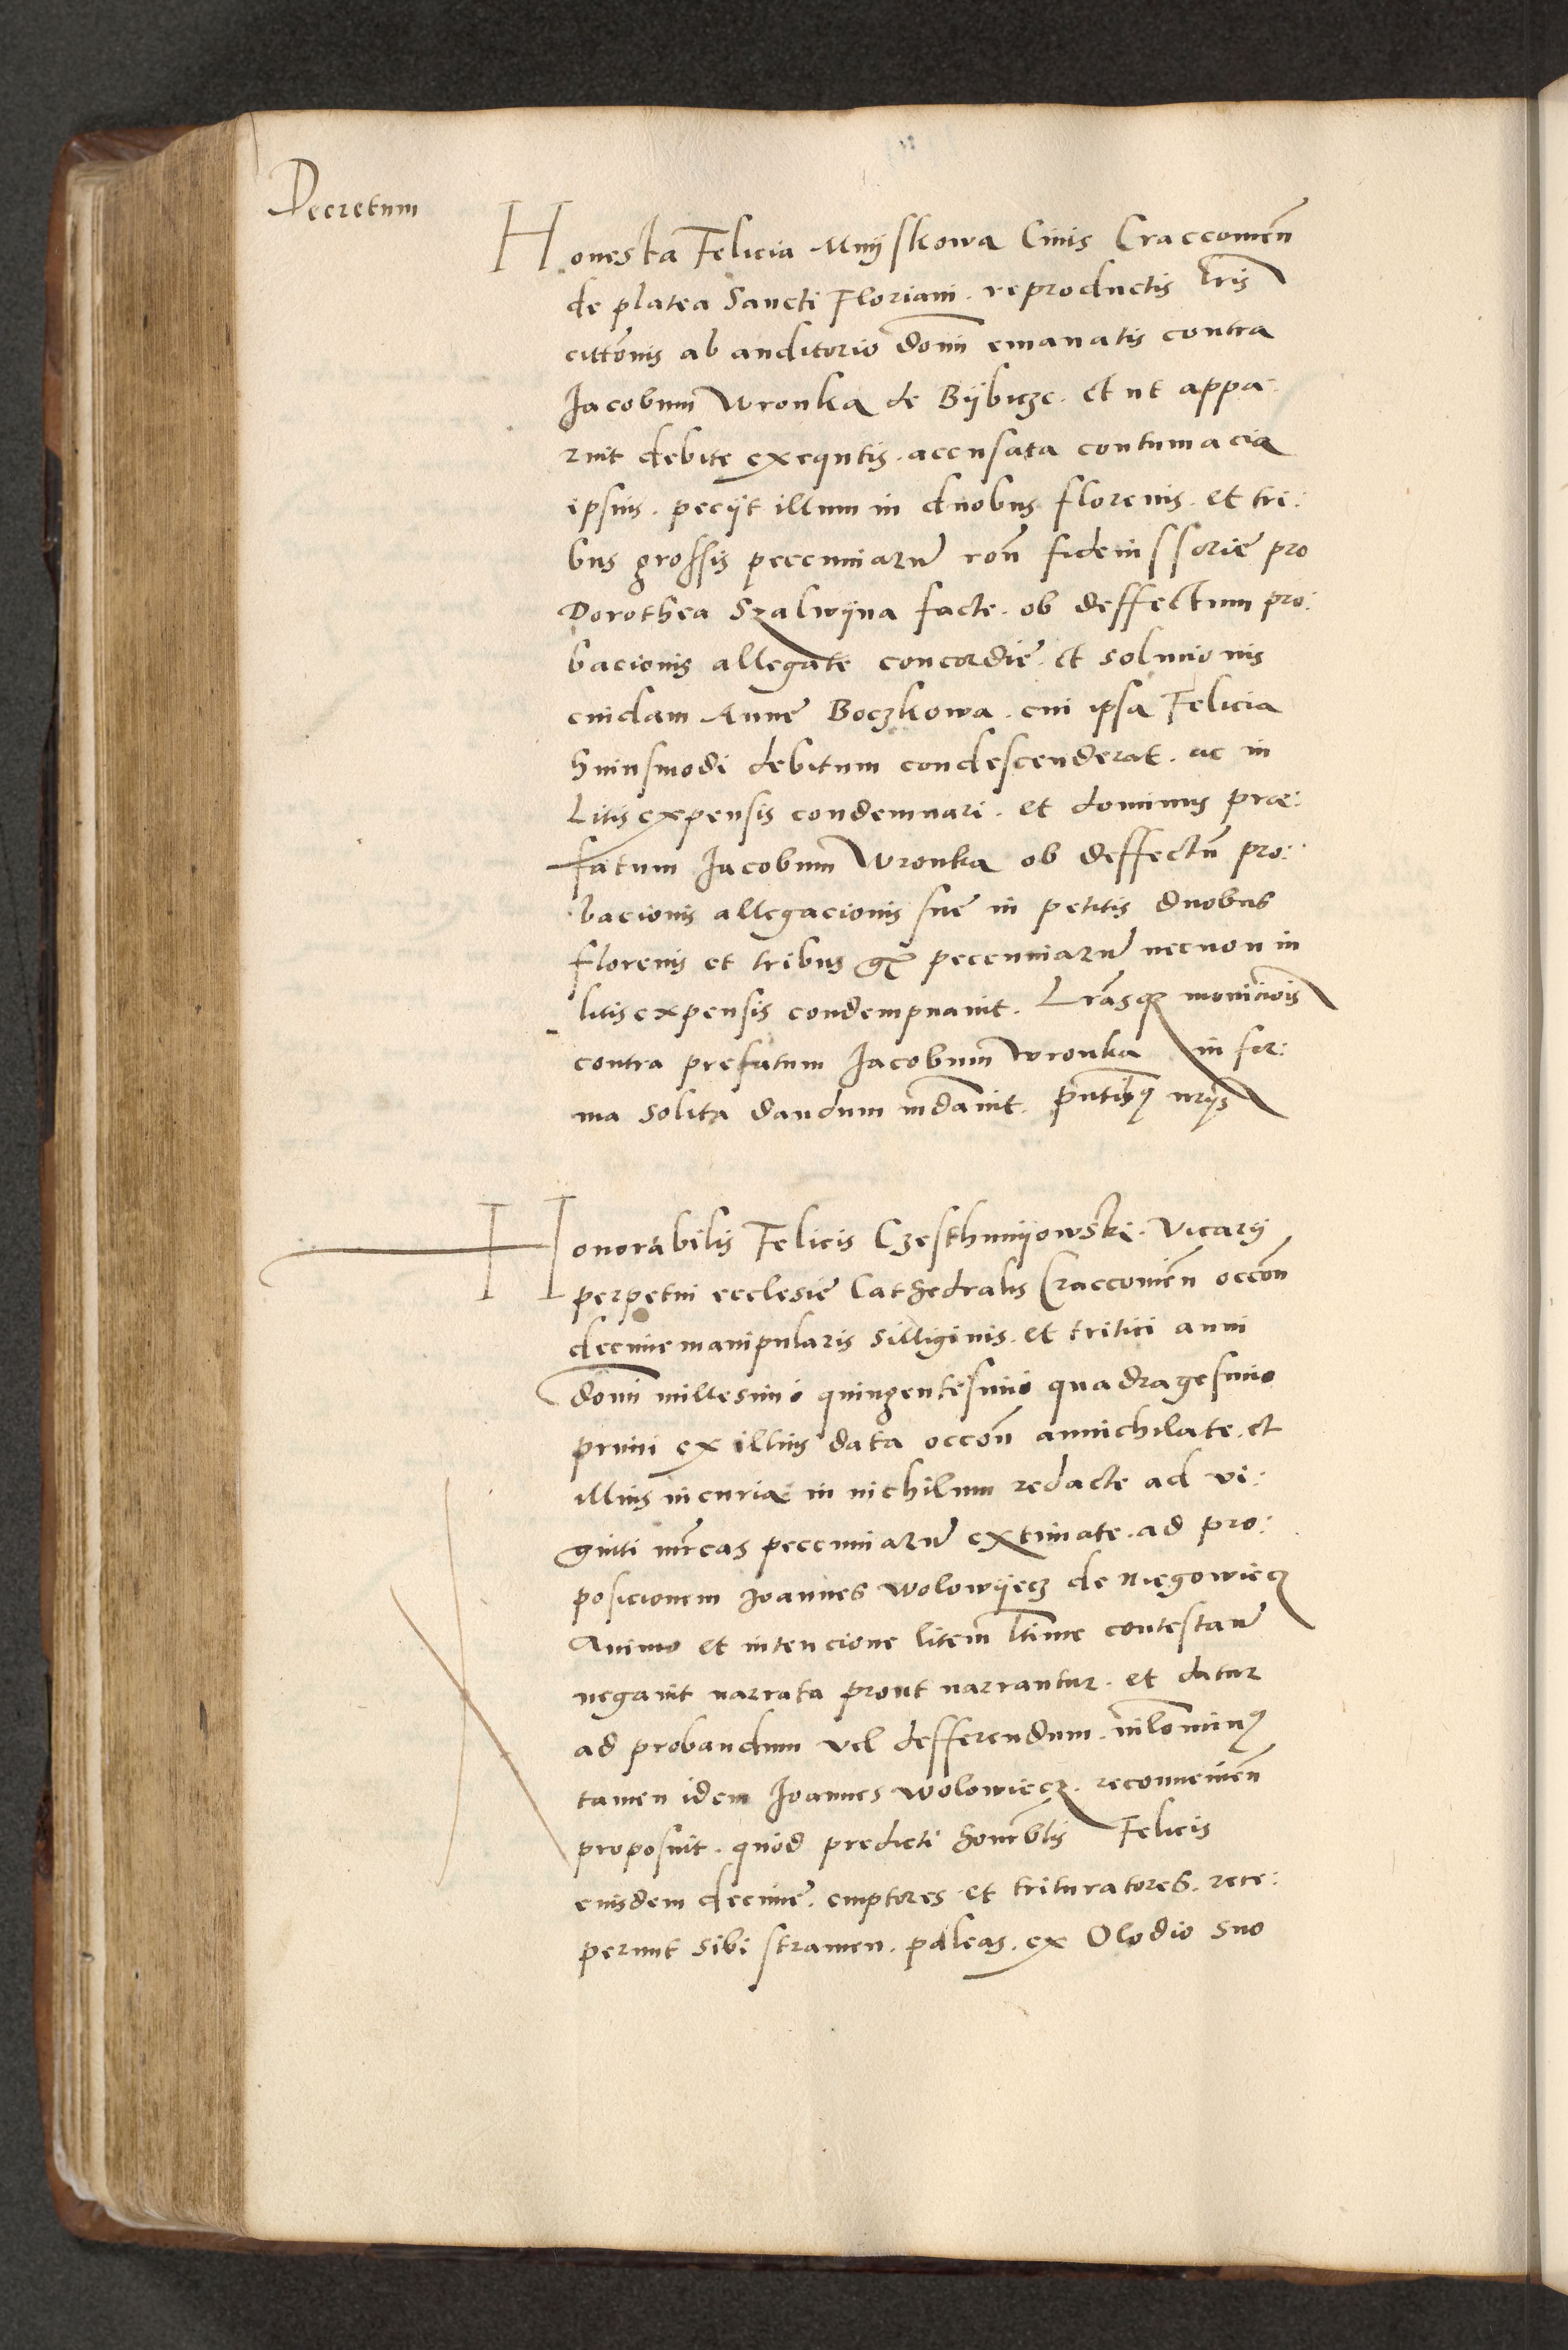 Decretum
Honesta Felicia Mnijskowa Civis Craccovien̄
de platea Sancti Floriani. reproductis lr̄is
citt̄onis ab auditorio dom̄ emanatis contra
Jacobum Wronka de Bijbicze. et ut appa:
ruit debite exequtis. accusata contumacia
ipsius. pecijt illum in duobus florenis. et tri:
bus grossis peccuniarū rōn fideiussorie pro
Dorothea Szalwijna facte. ob deffectum pro:
bacionis allegate concordie. et solucionis
cuidam Anne Boczkowa. cui ipsa Felicia
huiusmodi debitum condescenderat. ac in
Litis expensis condemnari. et dominus præ:
fatum Jacobum Wronka ob deffectū pro:
bacionis allegacionis sue in petitis duobus
florenis et tribus gr̄ peccuniarū necnon in
litis expensis condempnavit. Lr̄asq monicīois
contra prefatum Jacobum Wronka in for:
ma solita dandum m̄davit. pn̄tibq nr̄ijs
Honorabilis Felicis Czesthmijowski. Vicarij
perpetui ecclesie Cathedralis Craccovien̄ occōn
decime manipularis silliginis. et tritici anni
dom̄ millesimi quingentesimi quadragesimi
primi ex illius data occōn annichilate. et
illius incuria in nichilum redacte ad vi:
ginti mr̄cas peccuniarū extimate. ad pro:
posicionem Joannes Wolowijecz de Niegowiecz
Animo et intencione litem l̄time contestanū
negavit narrata prout narrantur. et datur
ad probandum vel defferendum. nilominq
tamen idem Joannes Wolowiecz. reconvenien̄
proposuit. quod predicti honr̄blis Felicis
eiusdem decime. emptores et trituratores. rece:
perunt sibi stramen. paleas. ex Olodio suo